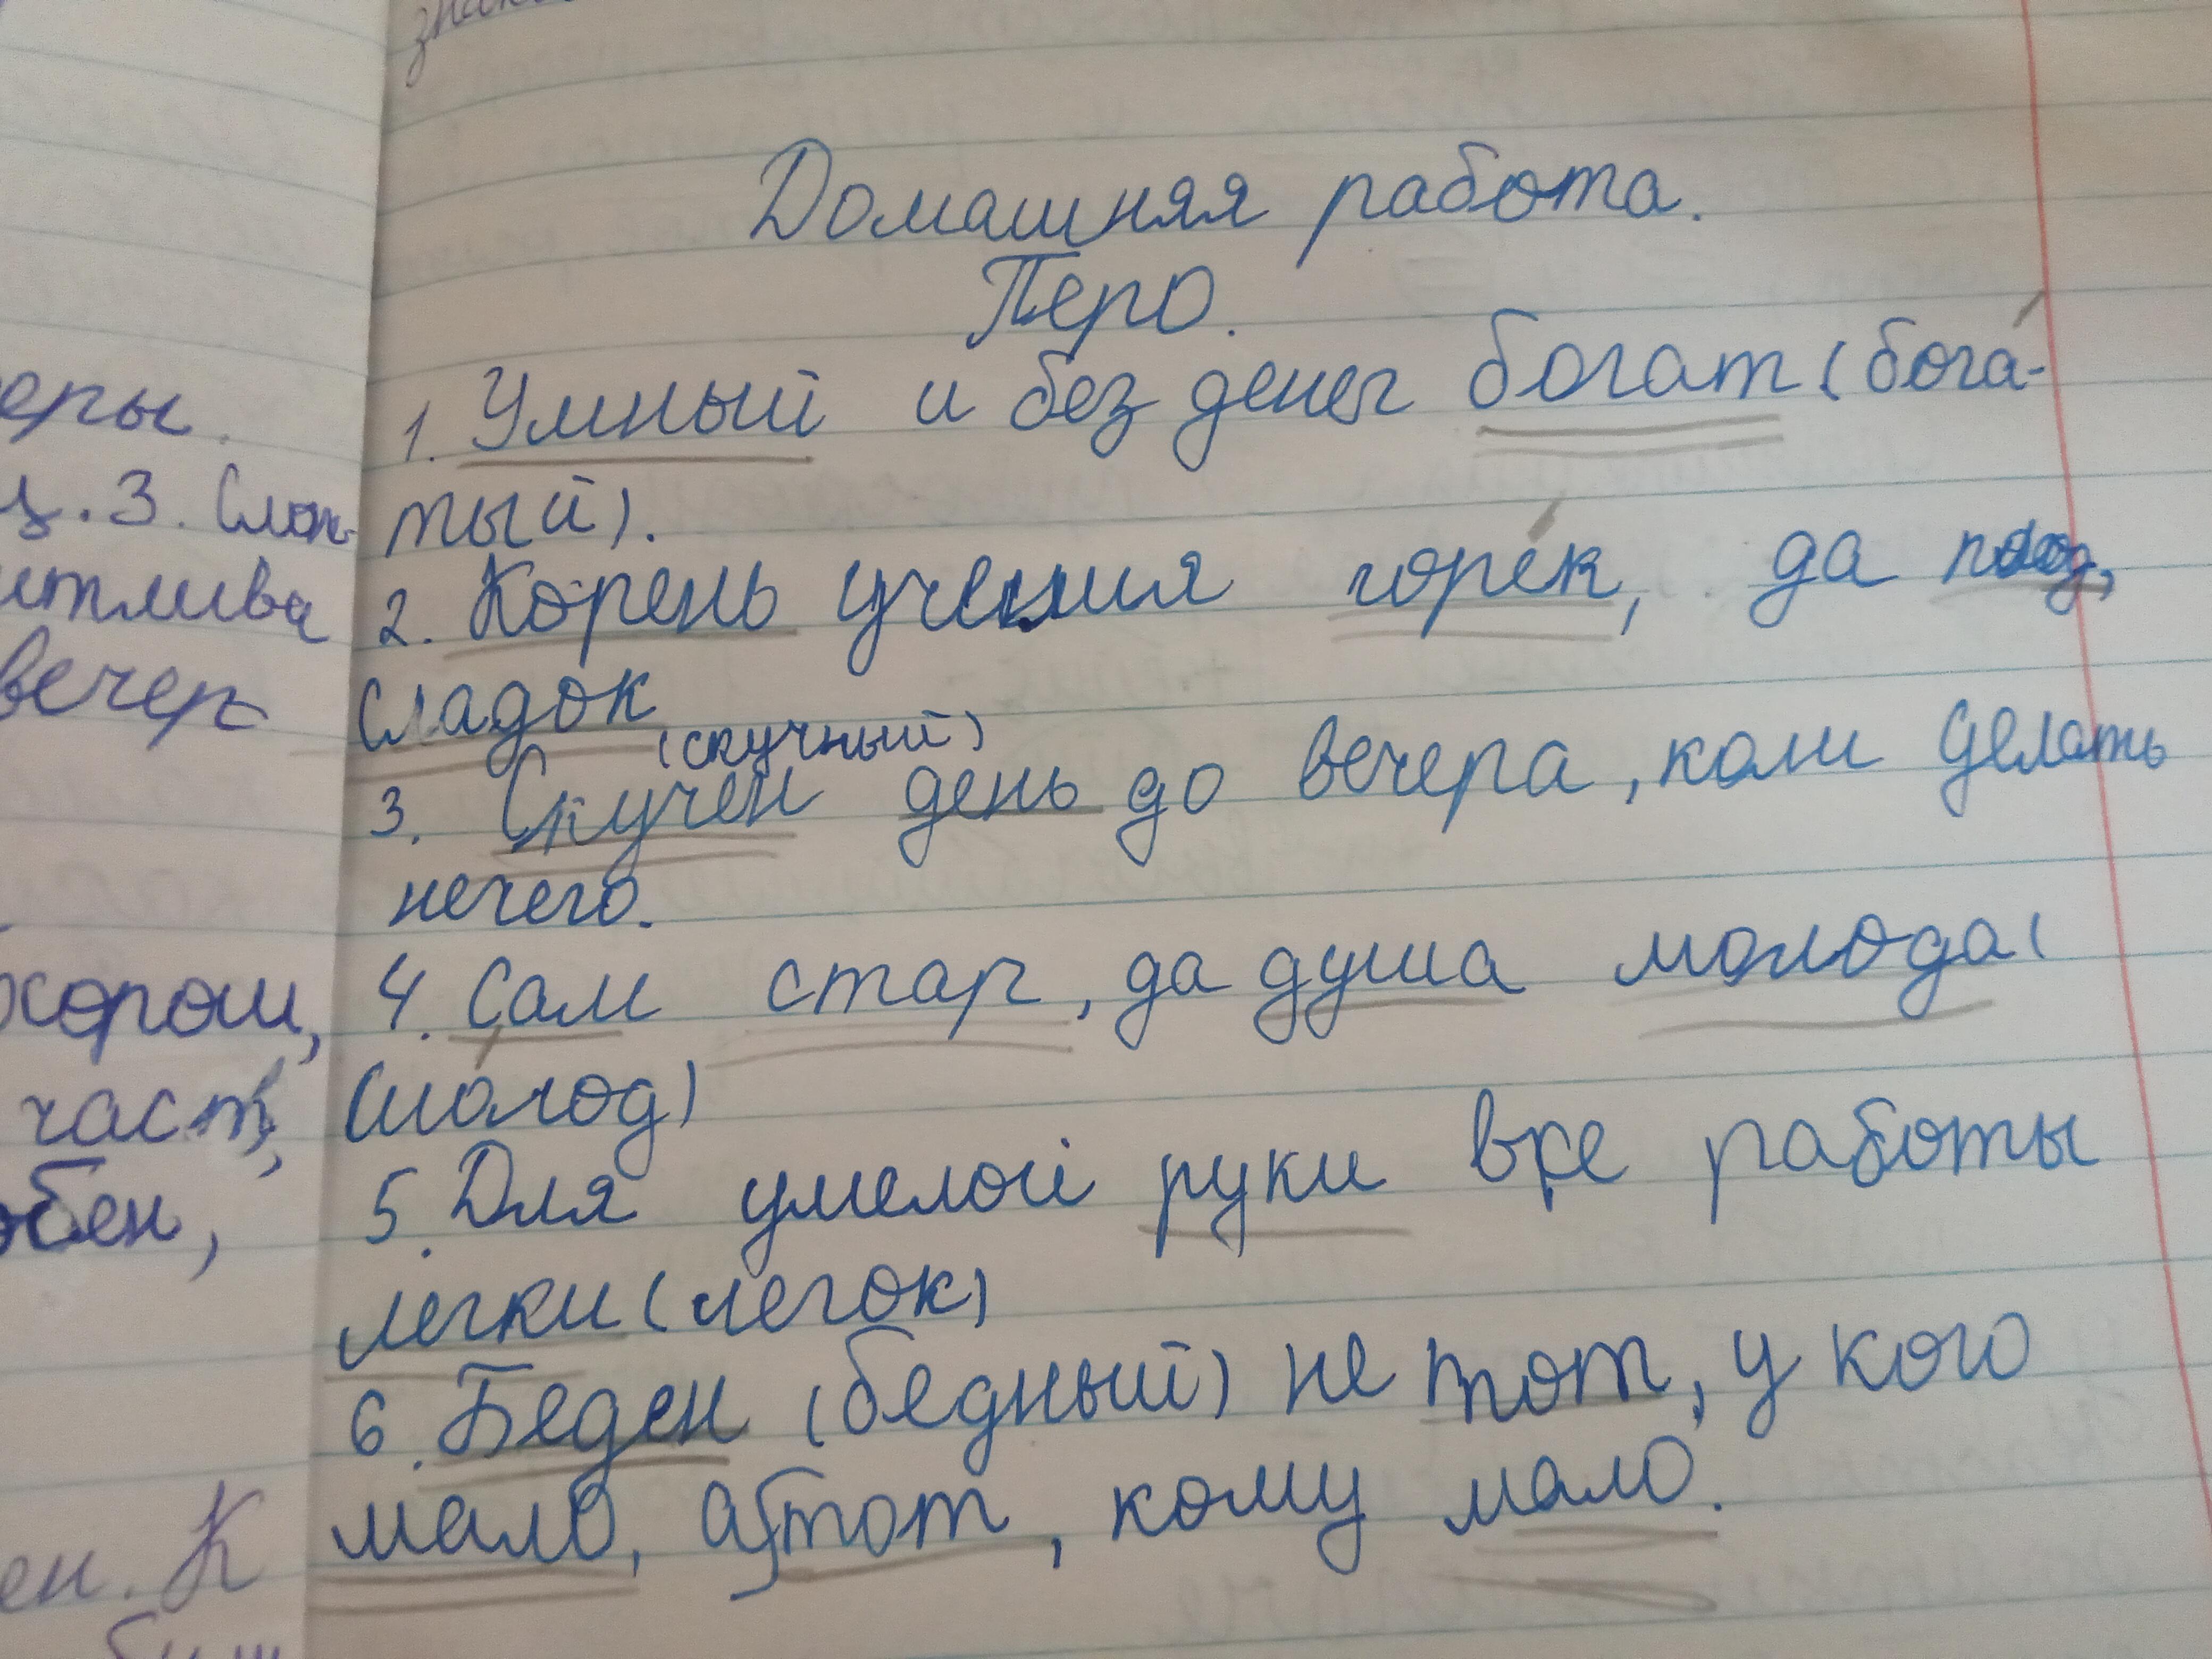 Домашняя работа.
Перо.
1. Умный и без денег богат (бога-
тый).
2. Корень учения горек, да плод,
сладок
(скучный)
3. Скучен день до вечера, коли делать
нечего.
4. Сам стар, да душа молода(
(молод)
5. Для умелой руки все работы
легки (легок)
6. Беден (бедный) не тот, у кого
мало, а тот, кому мало.
еры.
ц. 3. Слож-
итлива
вечер
хорош,
част,
обен,
ен. К